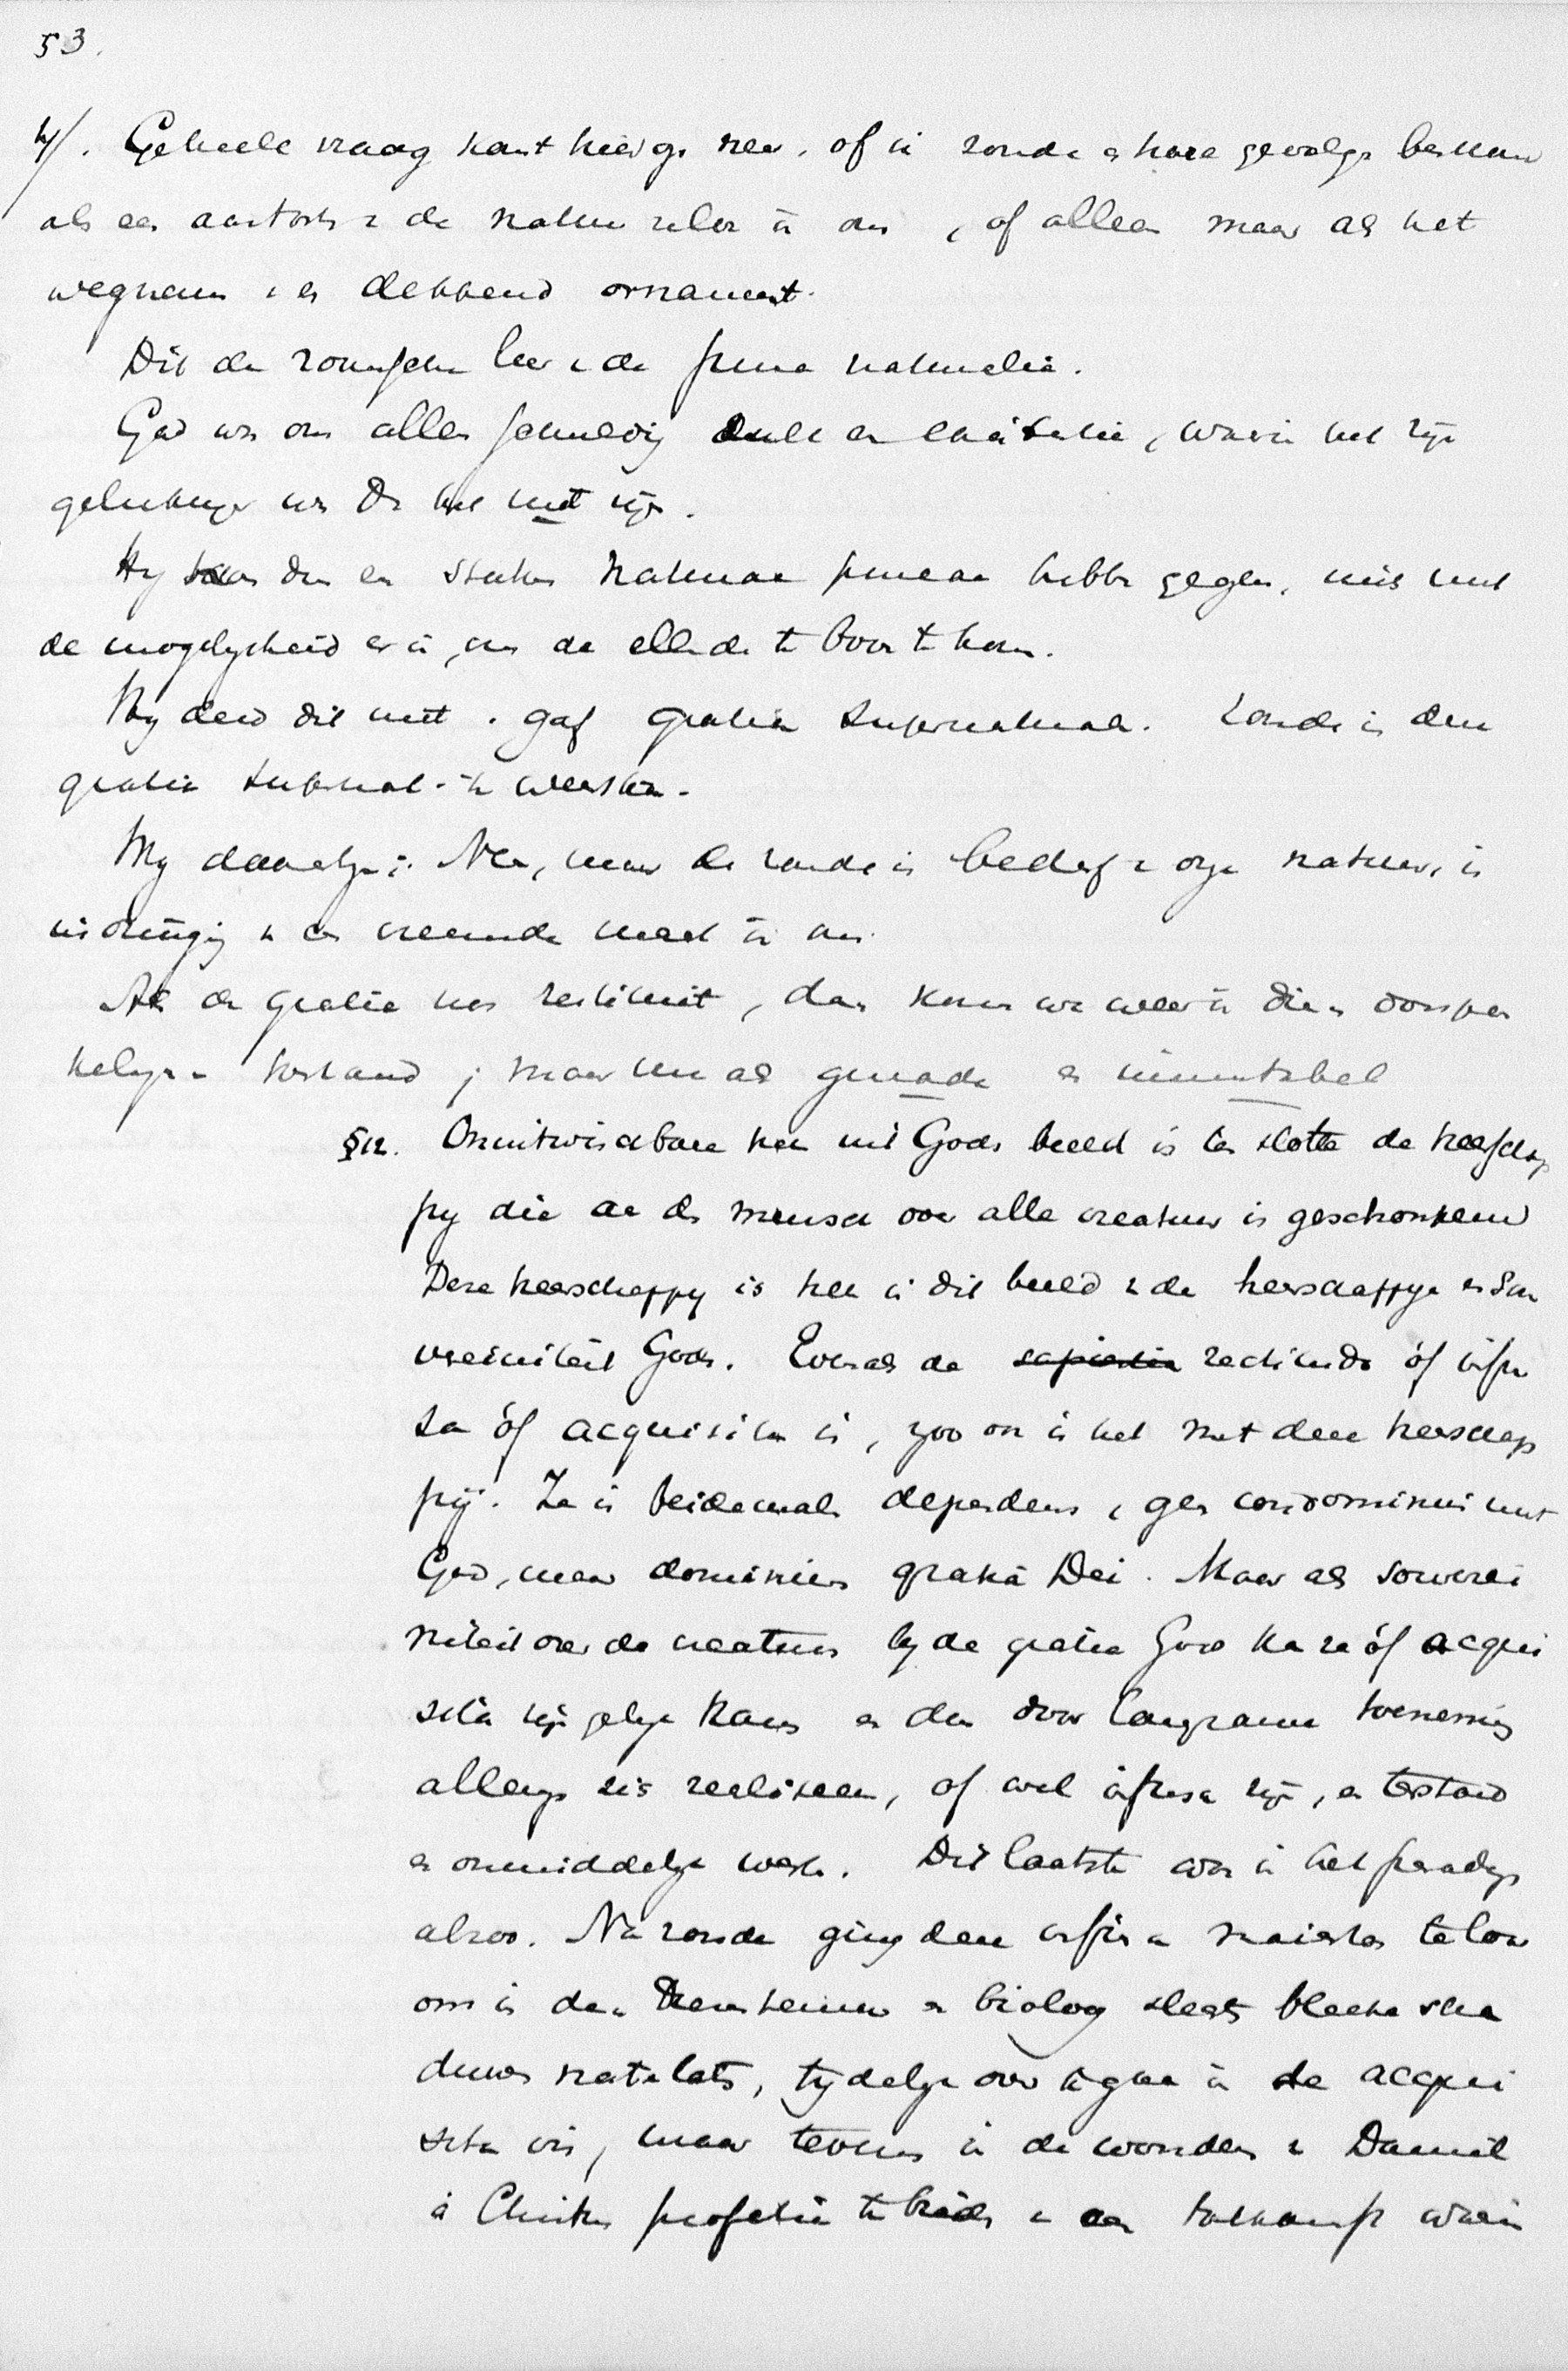 53.
4/. Geheele vraag komt hierop neer, of in zonde en hare gevolgen bestaan
als een aantasten v de natuur zelve in ons, of alleen maar als het
wegnemen v een dekkend ornament.
Dit de roomsche leer v de pura naturalia.
God was ons alleen schuldig zulk een existentie, waarin het zijn
gelukkiger was dan het niet zijn.
Hy kon dus een status naturae purae hebben gegeven, mits met
de mogelykheid er in, om de ellende te boven te komen.
Hy deed dit niet. gaf gratia supernatural. Zonde is den
gratia supernat. te weerstaan.
Wy daarentegen: Nee, maar de zonde is bederf v onze natuur, is
indringing v een vreemde macht in ons.
Als de gratia nos restituit, dan komen we weer in dien oorspron
kelyken toestand; maar nu als genade en inmutabel
§12. Onuitwischbare trek uit Gods beeld is ten slotte de heerschap
py die aan den mensch over alle creatuur is geschonken
Deze heerschappy is trek in dit beeld v de heerschappye en Sou
vereiniteit Gods. Evenals de sapientia rectitudo óf infu
sa óf acquisita is, zoo ook is het met deze heerschap
pij. Ze is beidemaal dependens, geen condominium met
God, maar dominium gratiâ Dei. Maar als souverei
niteit over de creatuur by de gratie Gods kan ze óf acqui
sita zijn gelyk thans en dus door langzame toeneming
allengs zich realiseeren, of wel infusa zijn, en terstond
en onmiddelyk werken. Dit laatste was in het paradys
alzoo. Na zonde ging deze infusa majestas teloor
om in den en biolog slechts bleeke scha
duwen na te laten, tydelyk over te gaan in de acqui
sita vis, maar tevens in de wonderen v Daniel
à Christus profetie te bieden v een toekomst waarin